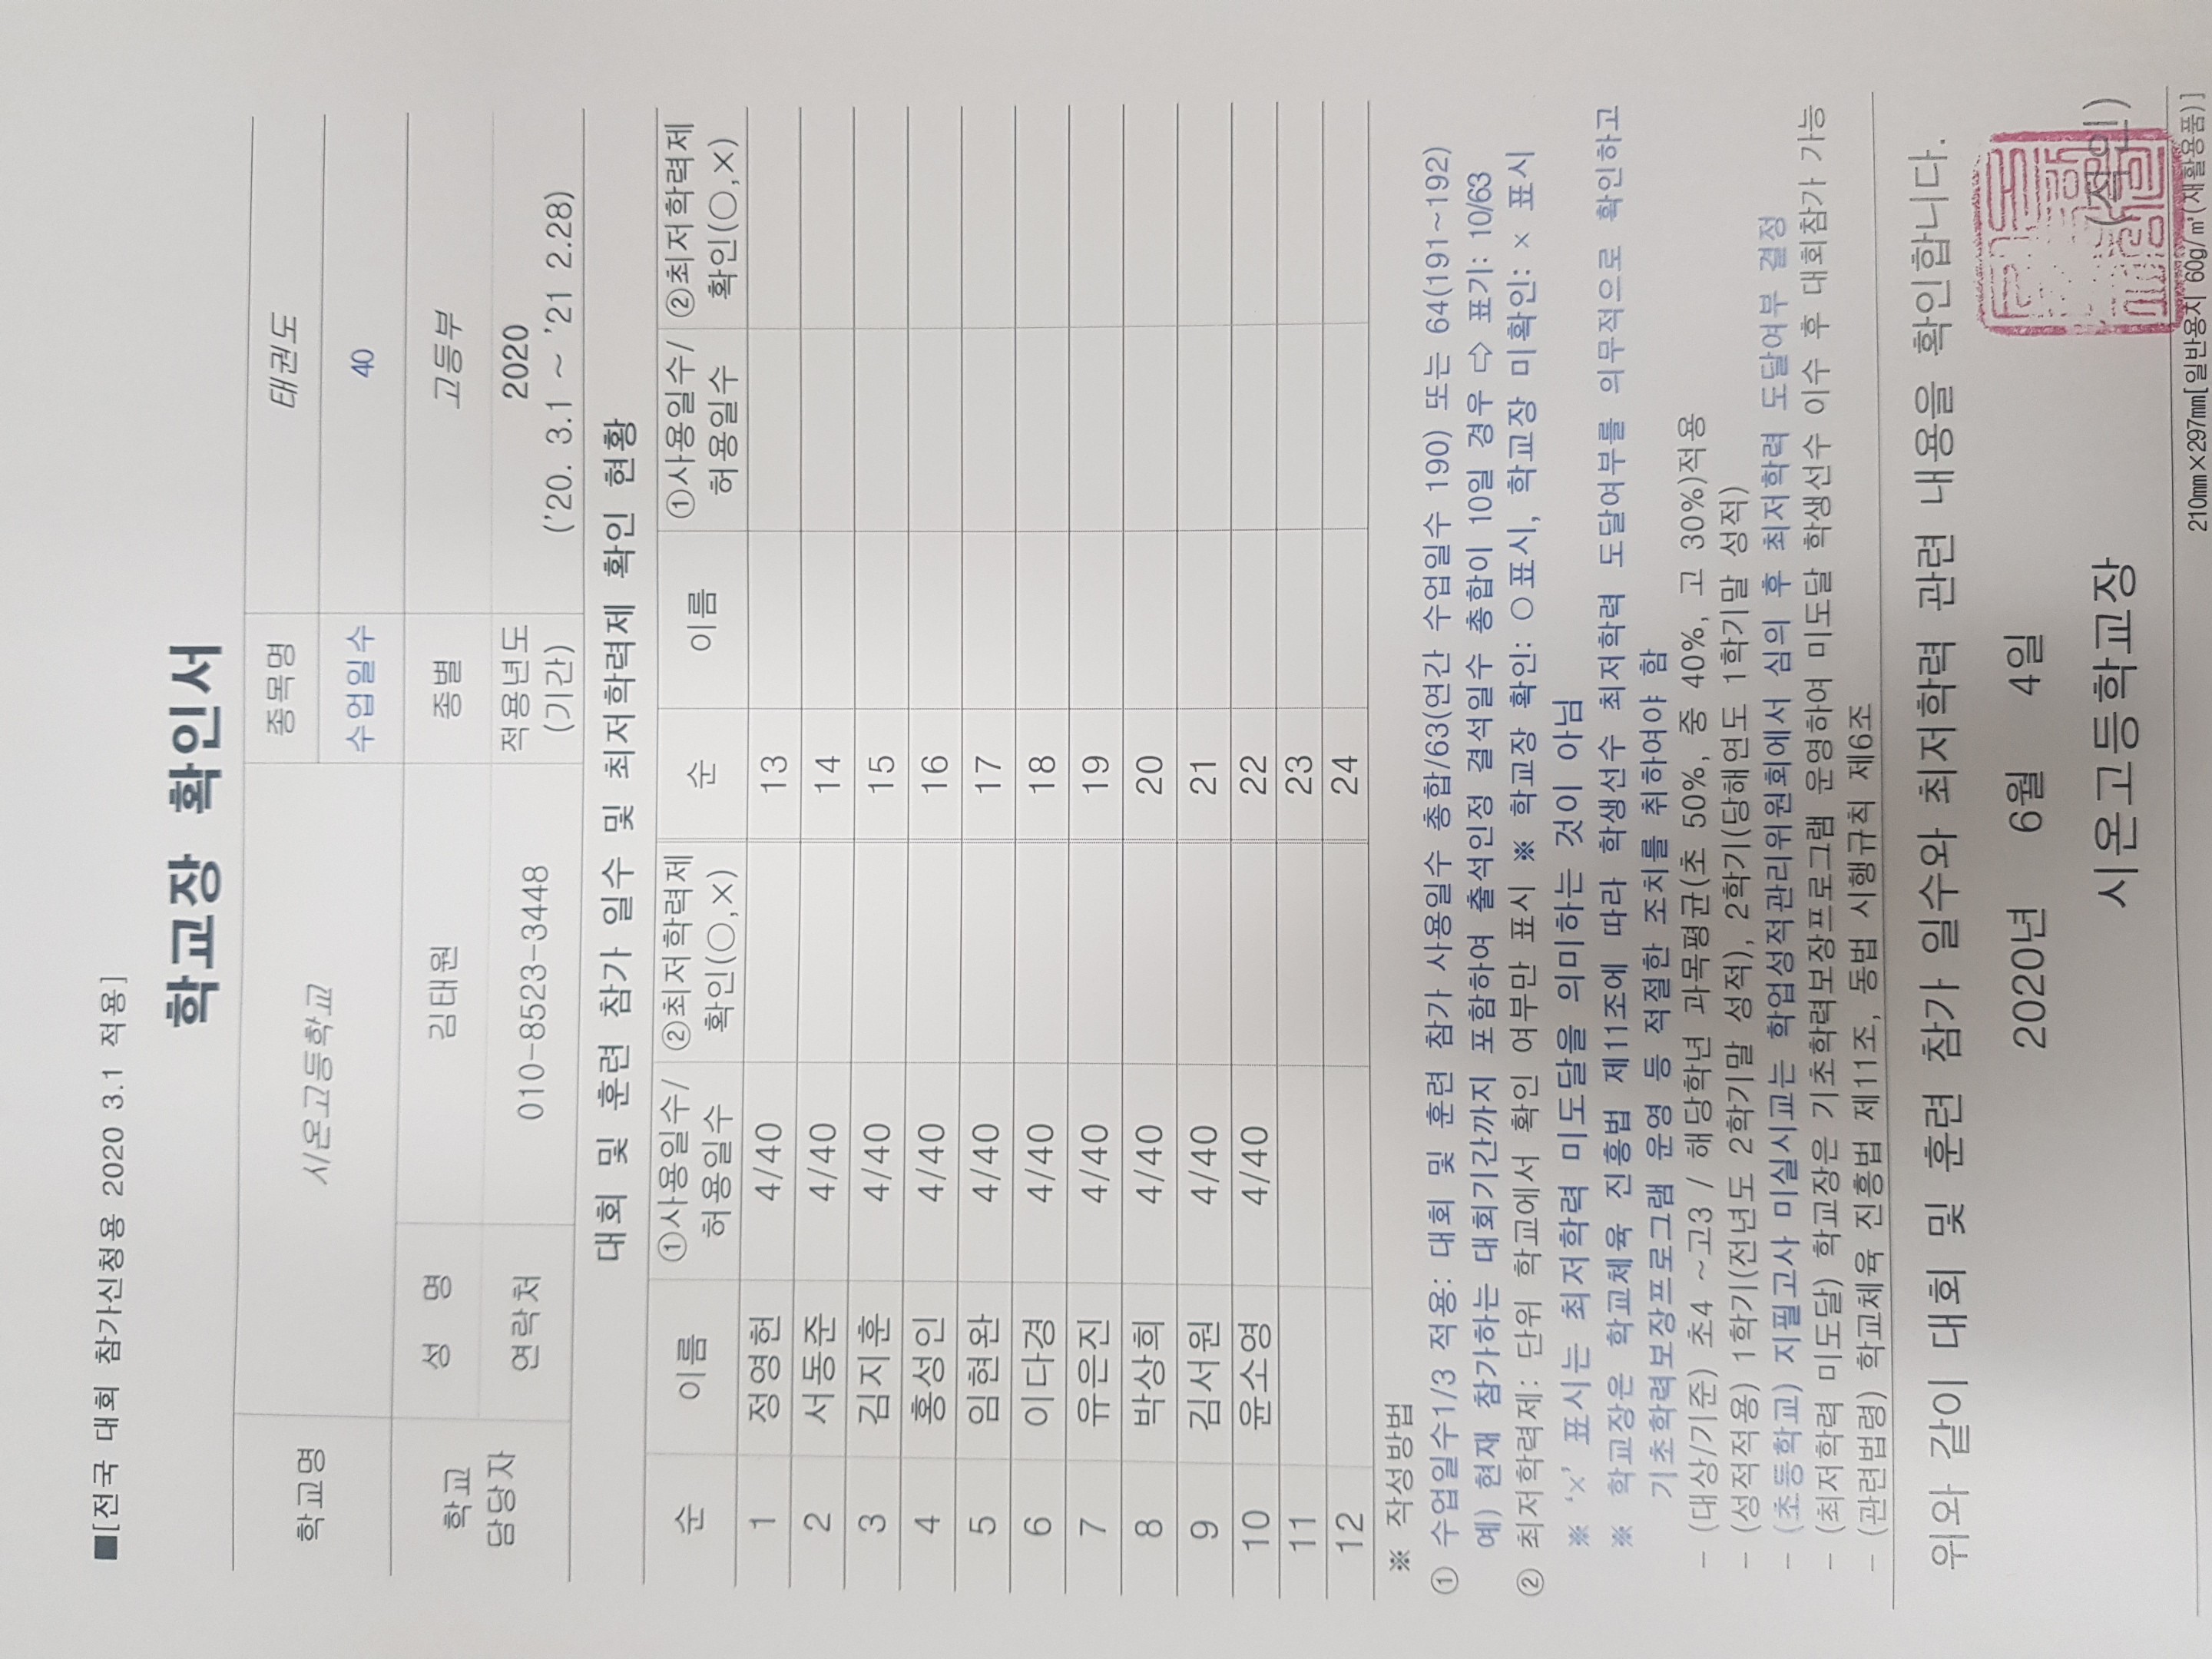 ■[전국 대회 참가신청용 2020 3.1 적용]
학교장 확인서
학교명 시온고등학교 종목명 태권도
수업일수 40
학교 담당자 성 명 김태원 종별 고등부
연락처 010-8523-3448 적용년도 (기간) 2020 ('20. 3.1 ~ '21 2.28)
대회 및 훈련 참가 일수 및 최저학력제 확인 현황
순 이름 ①사용일수/허용일수 ②최저학력제 확인(○,×) 순 이름 ①사용일수/허용일수 ②최저학력제 확인(○,×)
1 정영헌 4/40 13
2 서동준 4/40 14
3 김지훈 4/40 15
4 홍성인 4/40 16
5 임현완 4/40 17
6 이다경 4/40 18
7 유은진 4/40 19
8 박상희 4/40 20
9 김서원 4/40 21
10 윤소영 4/40 22
11 23
12 24
※ 작성방법
① 수업일수1/3 적용: 대회 및 훈련 참가 사용일수 총합/63(연간 수업일수 190) 또는 64(191~192)
예) 현재 참가하는 대회기간까지 포함하여 출석인정 결석일수 총합이 10일 경우 ⇨ 표기: 10/63
② 최저학력제: 단위 학교에서 확인 여부만 표시 ※ 학교장 확인: ○표시, 학교장 미확인: × 표시
※ '×' 표시는 최저학력 미도달을 의미하는 것이 아님
※ 학교장은 학교체육 진흥법 제11조에 따라 학생선수 최저학력 도달여부를 의무적으로 확인하고
기초학력보장프로그램 운영 등 적절한 조치를 취하여야 함
- (대상/기준) 초4 ~고3 / 해당학년 과목평균(초 50%, 중 40%, 고 30%)적용
- (성적적용) 1학기(전년도 2학기말 성적), 2학기(당해연도 1학기말 성적)
- (초등학교) 지필고사 미실시교는 학업성적관리위원회에서 심의 후 최저학력 도달여부 결정
- (최저학력 미도달) 학교장은 기초학력보장프로그램 운영하여 미도달 학생선수 이수 후 대회참가 가능
- (관련법령) 학교체육 진흥법 제11조, 동법 시행규칙 제6조
위와 같이 대회 및 훈련 참가 일수와 최저학력 관련 내용을 확인합니다.
2020년 6월 4일
시온고등학교장 (직인)
210mm×297mm[일반용지 60g/㎡(재활용품)]